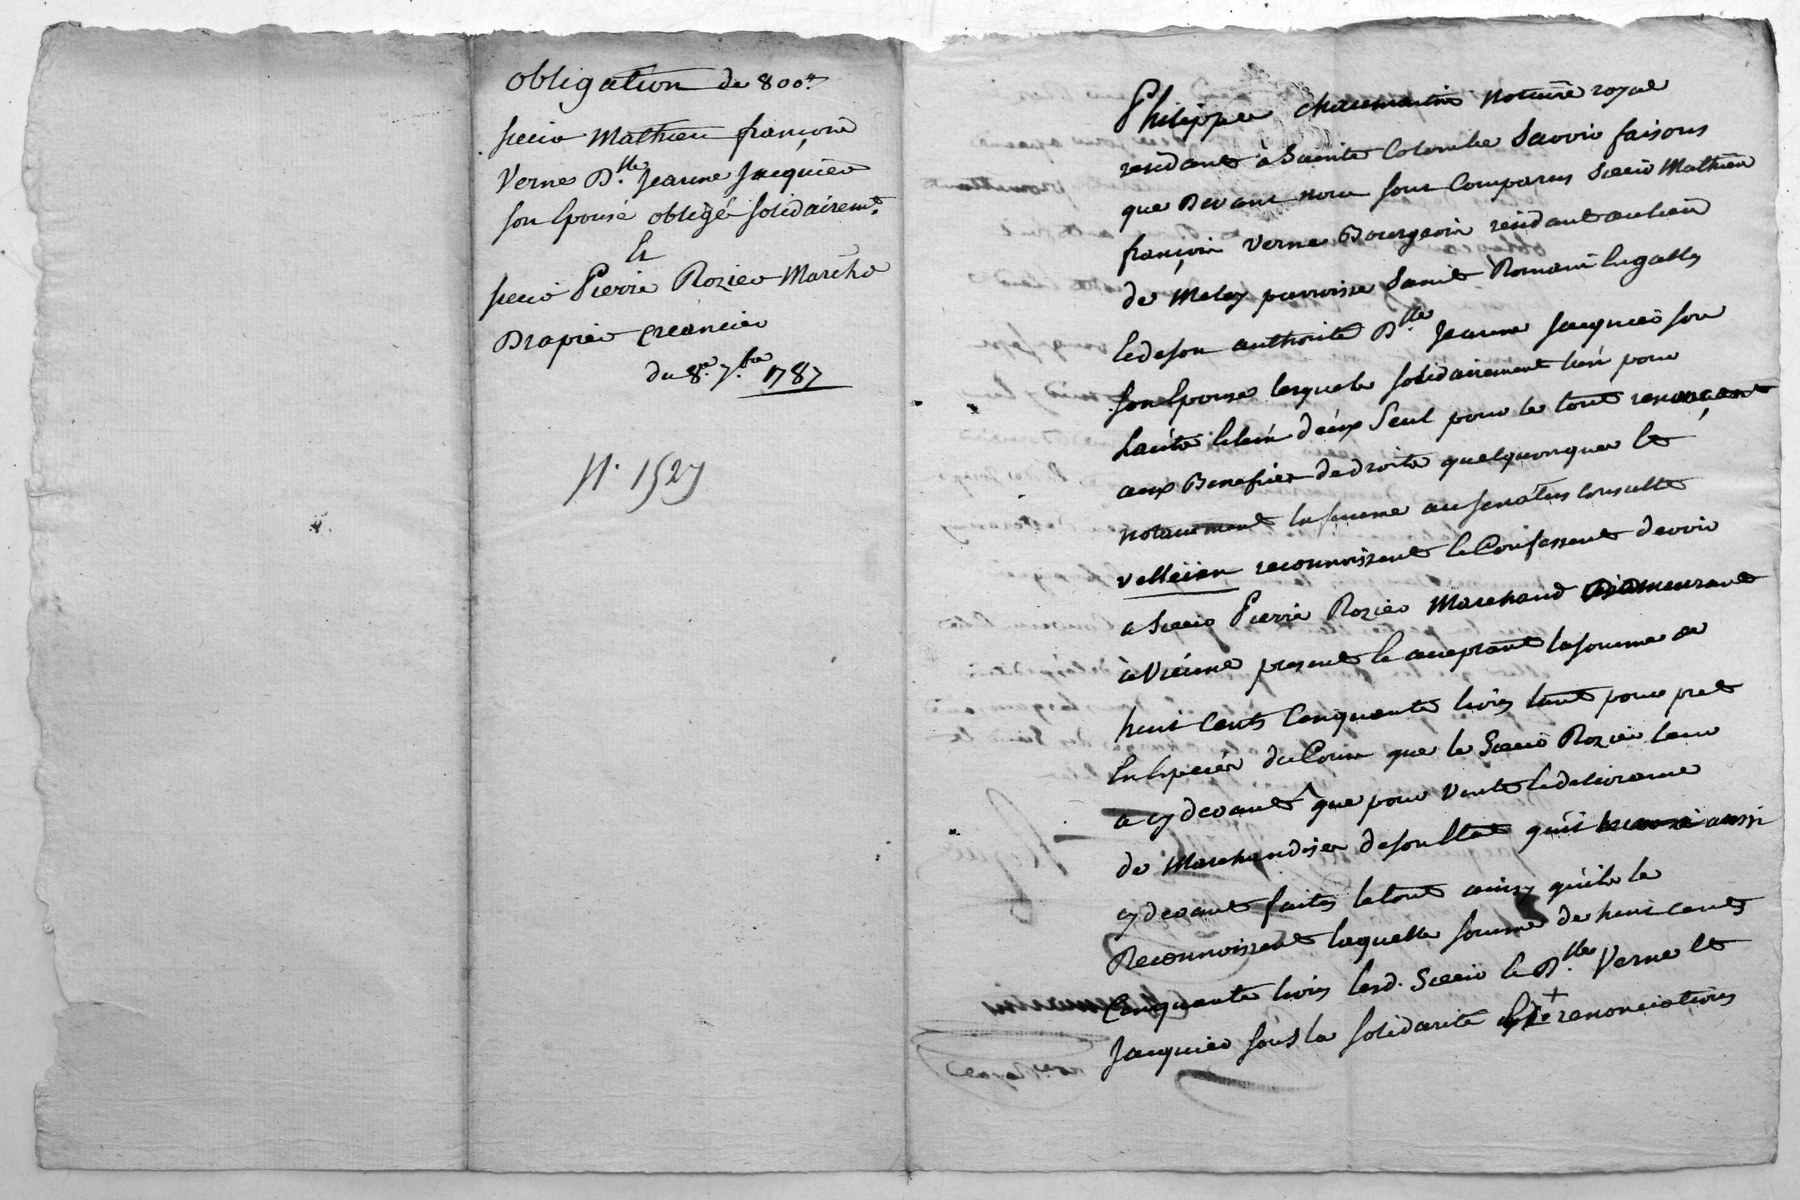 obligation de 800#
sieur Mathieu françois
Verne D.lle Jeanne Jacquier
son Epouse obligé solidairem.t
Et
sieur Pierre Rozier March.d
Drapier creancier
du 8.e 7.bre 1787
N. 1527
Philippe Chazemartin notaire royal
residant à Sainte Colombe Savoir faisons
que Devant nous sont Comparus Sieur Mathieu
françois Verne Bourgeois residant au lieu
de Melay parroisse Saint Romain Engalles
& de son authorité D.lle Jeanne Jacquier son
son Epouse lesquels solidairement l'un pour
l'autre & l'un d'eux seul pour le tout renonçant
aux Benefices de droits quelquonques Et
notamment la femme au senatus consulte
velleien reconnoissent & Confessent devoir
a Sieur Pierre Rozier Marchand Demeurant
à Vienne present & acceptant la somme de
huit Cents Cinquante livres tant pour pret
En Especes du Cours que le Sieur Rozier leur
a cy devant que pour Vente & delivrance
de Marchandises de son Etat qu'il aussi
cy devant faites le tout ainsy qu'ils le
Reconnoissent laquelle somme de huit Cents
Cinquante livres lesd. Sieur & D.lle Verne Et
Jacquier sous la solidarité & renonciations